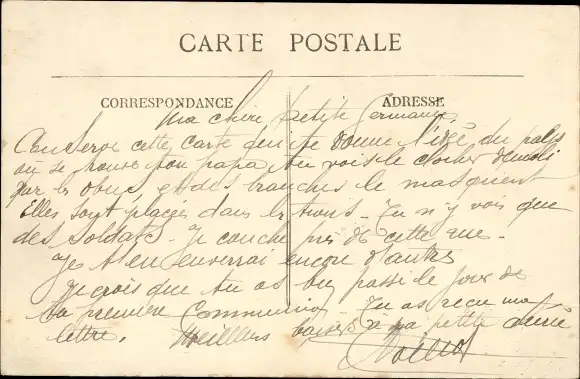 CARTE POSTALE
CORRESPONDANCE
ADRESSE
Ma chère petite Germaine,
Conserve cette carte qui te donne l'idé du pals
où se trouve ton papa tu vois le clocher démoli
par les obus, et des branches le masquent
Elles sont placées dans les Tu n'y vois que
des Soldats. Je couche près de cette rue.
Je t'en enverrai encore d'autres
Je crois que tu as bu passé le jour de
ta première Communion. Tu as reçu ma
lettre. Meilleurs baisers à ma petite